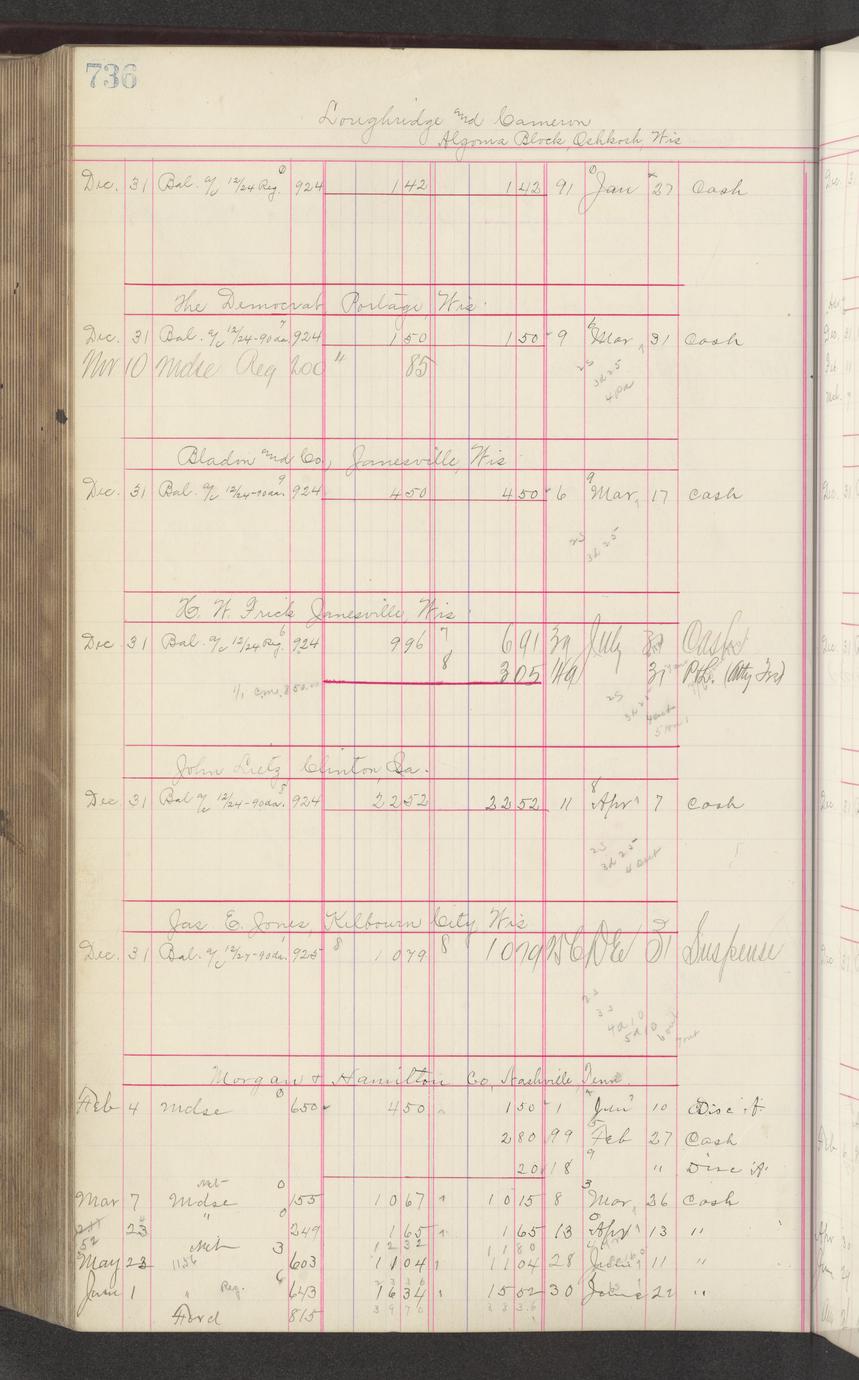 736
Loughridge and Cameron
Algoma Block, Oshkosh, Wis
Dec. 31 Bal. a/c 12/24 Reg. 924 142 142 91 Jan 27 Cash
The Democrat Portage, Wis.
Dec. 31 Bal. a/c 12/24-90da. 924 150 150 9 Mar, 31 Cash
10 Mdse Reg 200 " 85
25
3d 25
Bladon and Co., Janesville, Wis
Dec. 31 Bal. a/c 924 450 450 6 Mar, 17 Cash
25
3d 25
H. W. Frick Janesville, Wis
Dec 31 Bal. a/c 12/24 Reg. 924 996 7 691 39 July Cash
8 305 31
25
3d 25
John Lietz Clinton
Dec 31 Bal a/c 12/24-90da. 924 2252 2252 11 Apr 7 Cash
25
3d 25
Jas. E. Jones, Kilbourn City, Wis
Dec. 31 Bal. a/c 925 8 1079 8 1079 31 Suspense
Morgan & Hamilton Co, Nashville Tenn.
Feb 4 Mdse 650 450 150 1 10 Disc
280 99 Feb 27 Cash
20 18 " Disc
Net
Mar 7 Mdse 155 1067 1015 8 Mar, 26 Cash
23 " 249 165 165 13 Apr 13 "
May 23 1156 Net 603 1104 1104 28 11 "
1 " Reg. 643 1634 1502 30 22 "
Ford 815 3970